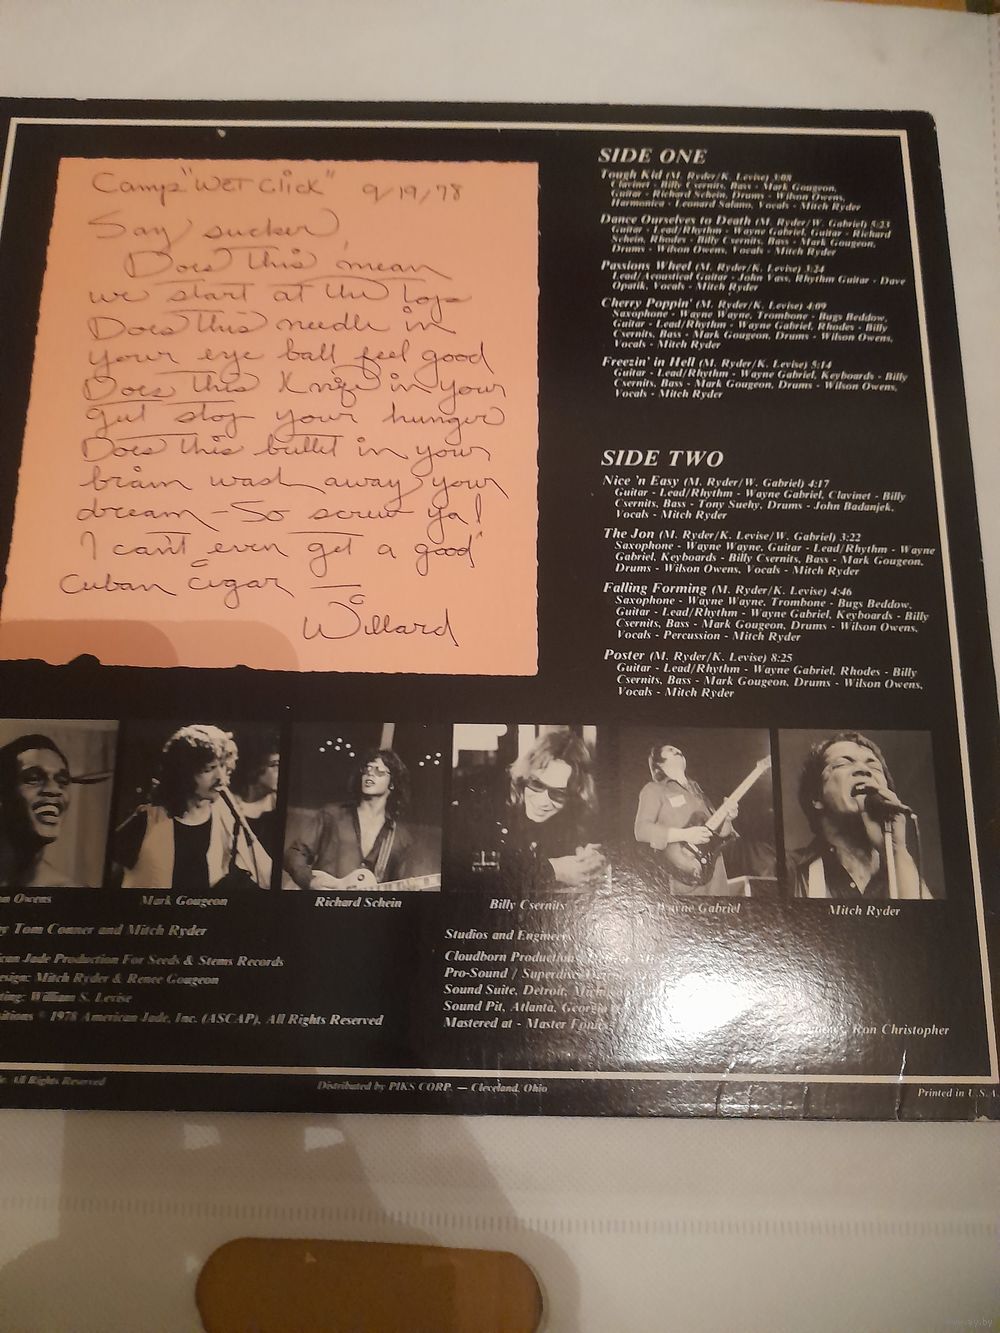 Camp "WET Click" 9/19/78
Say sucker,
Does this mean
we start at the top
Does this needle in
your eye ball feel good
Does this Knife in your
gut stop your hunger
Does this bullet in your
brain wash away your
dream - So screw ya!
I can't even get a good
Cuban Cigar —
Willard
SIDE ONE
Tough Kid (M. Ryder/K. Levise) 3:08
Clavinet - Billy Csernits, Bass - Mark Gougeon,
Guitar - Richard Schein, Drums - Wilson Owens,
Harmonica - Leonard Salano, Vocals - Mitch Ryder
Dance Ourselves to Death (M. Ryder/W. Gabriel) 5:23
Guitar - Lead/Rhythm - Wayne Gabriel, Guitar - Richard
Schein, Rhodes - Billy Csernits, Bass - Mark Gougeon,
Drums - Wilson Owens, Vocals - Mitch Ryder
Passions Wheel (M. Ryder/K. Levise) 3:24
Lead/Acoustical Guitar - John Vass, Rhythm Guitar - Dave
Opatik, Vocals - Mitch Ryder
Cherry Poppin' (M. Ryder/K. Levise) 4:09
Saxophone - Wayne Wayne, Trombone - Bugs Beddow,
Guitar - Lead/Rhythm - Wayne Gabriel, Rhodes - Billy
Csernits, Bass - Mark Gougeon, Drums - Wilson Owens,
Vocals - Mitch Ryder
Freezin' in Hell (M. Ryder/K. Levise) 5:14
Guitar - Lead/Rhythm - Wayne Gabriel, Keyboards - Billy
Csernits, Bass - Mark Gougeon, Drums - Wilson Owens,
Vocals - Mitch Ryder
SIDE TWO
Nice 'n Easy (M. Ryder/W. Gabriel) 4:17
Guitar - Lead/Rhythm - Wayne Gabriel, Clavinet - Billy
Csernits, Bass - Tony Suehy, Drums - John Badanjek,
Vocals - Mitch Ryder
The Jon (M. Ryder/K. Levise/W. Gabriel) 3:22
Saxophone - Wayne Wayne, Guitar - Lead/Rhythm - Wayne
Gabriel, Keyboards - Billy Csernits, Bass - Mark Gougeon,
Drums - Wilson Owens, Vocals - Mitch Ryder
Falling Forming (M. Ryder/K. Levise) 4:46
Saxophone - Wayne Wayne, Trombone - Bugs Beddow,
Guitar - Lead/Rhythm - Wayne Gabriel, Keyboards - Billy
Csernits, Bass - Mark Gougeon, Drums - Wilson Owens,
Vocals - Percussion - Mitch Ryder
Poster (M. Ryder/K. Levise) 8:25
Guitar - Lead/Rhythm - Wayne Gabriel, Rhodes - Billy
Csernits, Bass - Mark Gougeon, Drums - Wilson Owens,
Vocals - Mitch Ryder
Owens
Mark Gougeon
Richard Schein
Billy Csernits
Wayne Gabriel
Mitch Ryder
by Tom Conner and Mitch Ryder
ican Jade Production For Seeds & Stems Records
esign: Mitch Ryder & Renee Gougeon
ting: William S. Levise
sitions © 1978 American Jade, Inc. (ASCAP), All Rights Reserved
Studios and Engineers
Cloudborn Productions
Pro-Sound / Superdisc
Sound Suite, Detroit, Mich
Sound Pit, Atlanta, Georgia
Mastered at - Master
Ron Christopher
All Rights Reserved
Distributed by PIKS CORP. — Cleveland, Ohio
Printed in U.S.A.